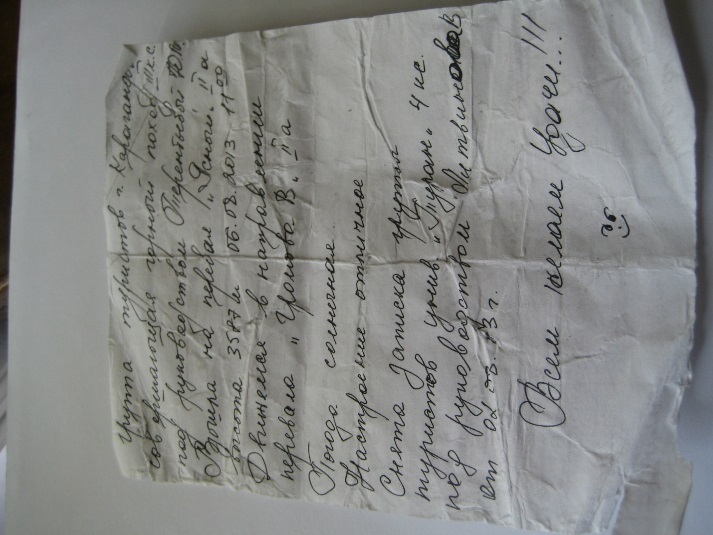 Группа туристов г. Караганды
совершающая горный поход III к.с.
под руководством Терентьевой
Взошла на перевал "Ясный" IIа
высота 3587 м 06.08.2013 11 00
Движемся в направлении
перевала " В. " IIа
Погода солнечная
Настроение отличное
Снята записка группы
туристов унив. "Туран" 4 кс.
под руководством Литвинова В
от 02 08. 13 г.
Всем желаем Удачи!!!